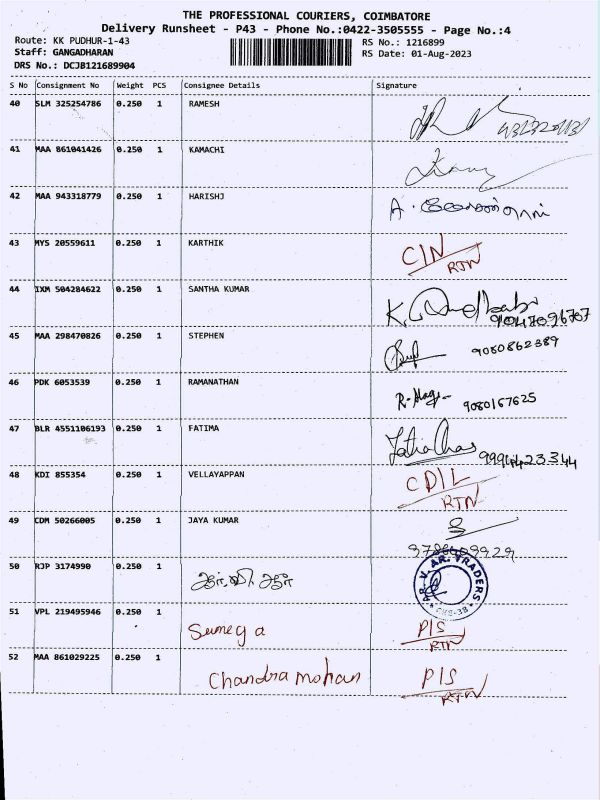 THE PROFESSIONAL COURIERS, COIMBATORE
Delivery Runsheet - P43 - Phone No.:0422-3505555 - Page No.:4
Route: KK PUDHUR-1-43 RS No.: 1216899
Staff: GANGADHARAN RS Date: 01-Aug-2023
DRS No.: DCJB121689904
S No Consignment No Weight PCS Consignee Details Signature
40 SLM 325254786 0.250 1 RAMESH
41 MAA 861041426 0.250 1 KAMACHI
42 MAA 943318779 0.250 1 HARISHJ
43 MYS 20559611 0.250 1 KARTHIK CIN
RTN
44 IXM 504284622 0.250 1 SANTHA KUMAR
9047096767
45 MAA 298470826 0.250 1 STEPHEN 9080862389
46 PDK 6053539 0.250 1 RAMANATHAN 9080167625
47 BLR 4551106193 0.250 1 FATIMA
9994423344
48 KDI 855354 0.250 1 VELLAYAPPAN CDIL
RTN
49 CDM 50266005 0.250 1 JAYA KUMAR
50 RJP 3174990 0.250 1 ஆர்.வி.ஆர் AR. V. AR. TRADERS
51 VPL 219495946 0.250 1 Sumega P/S
RTN
52 MAA 861029225 0.250 1 Chandra mohan P/S
RTN